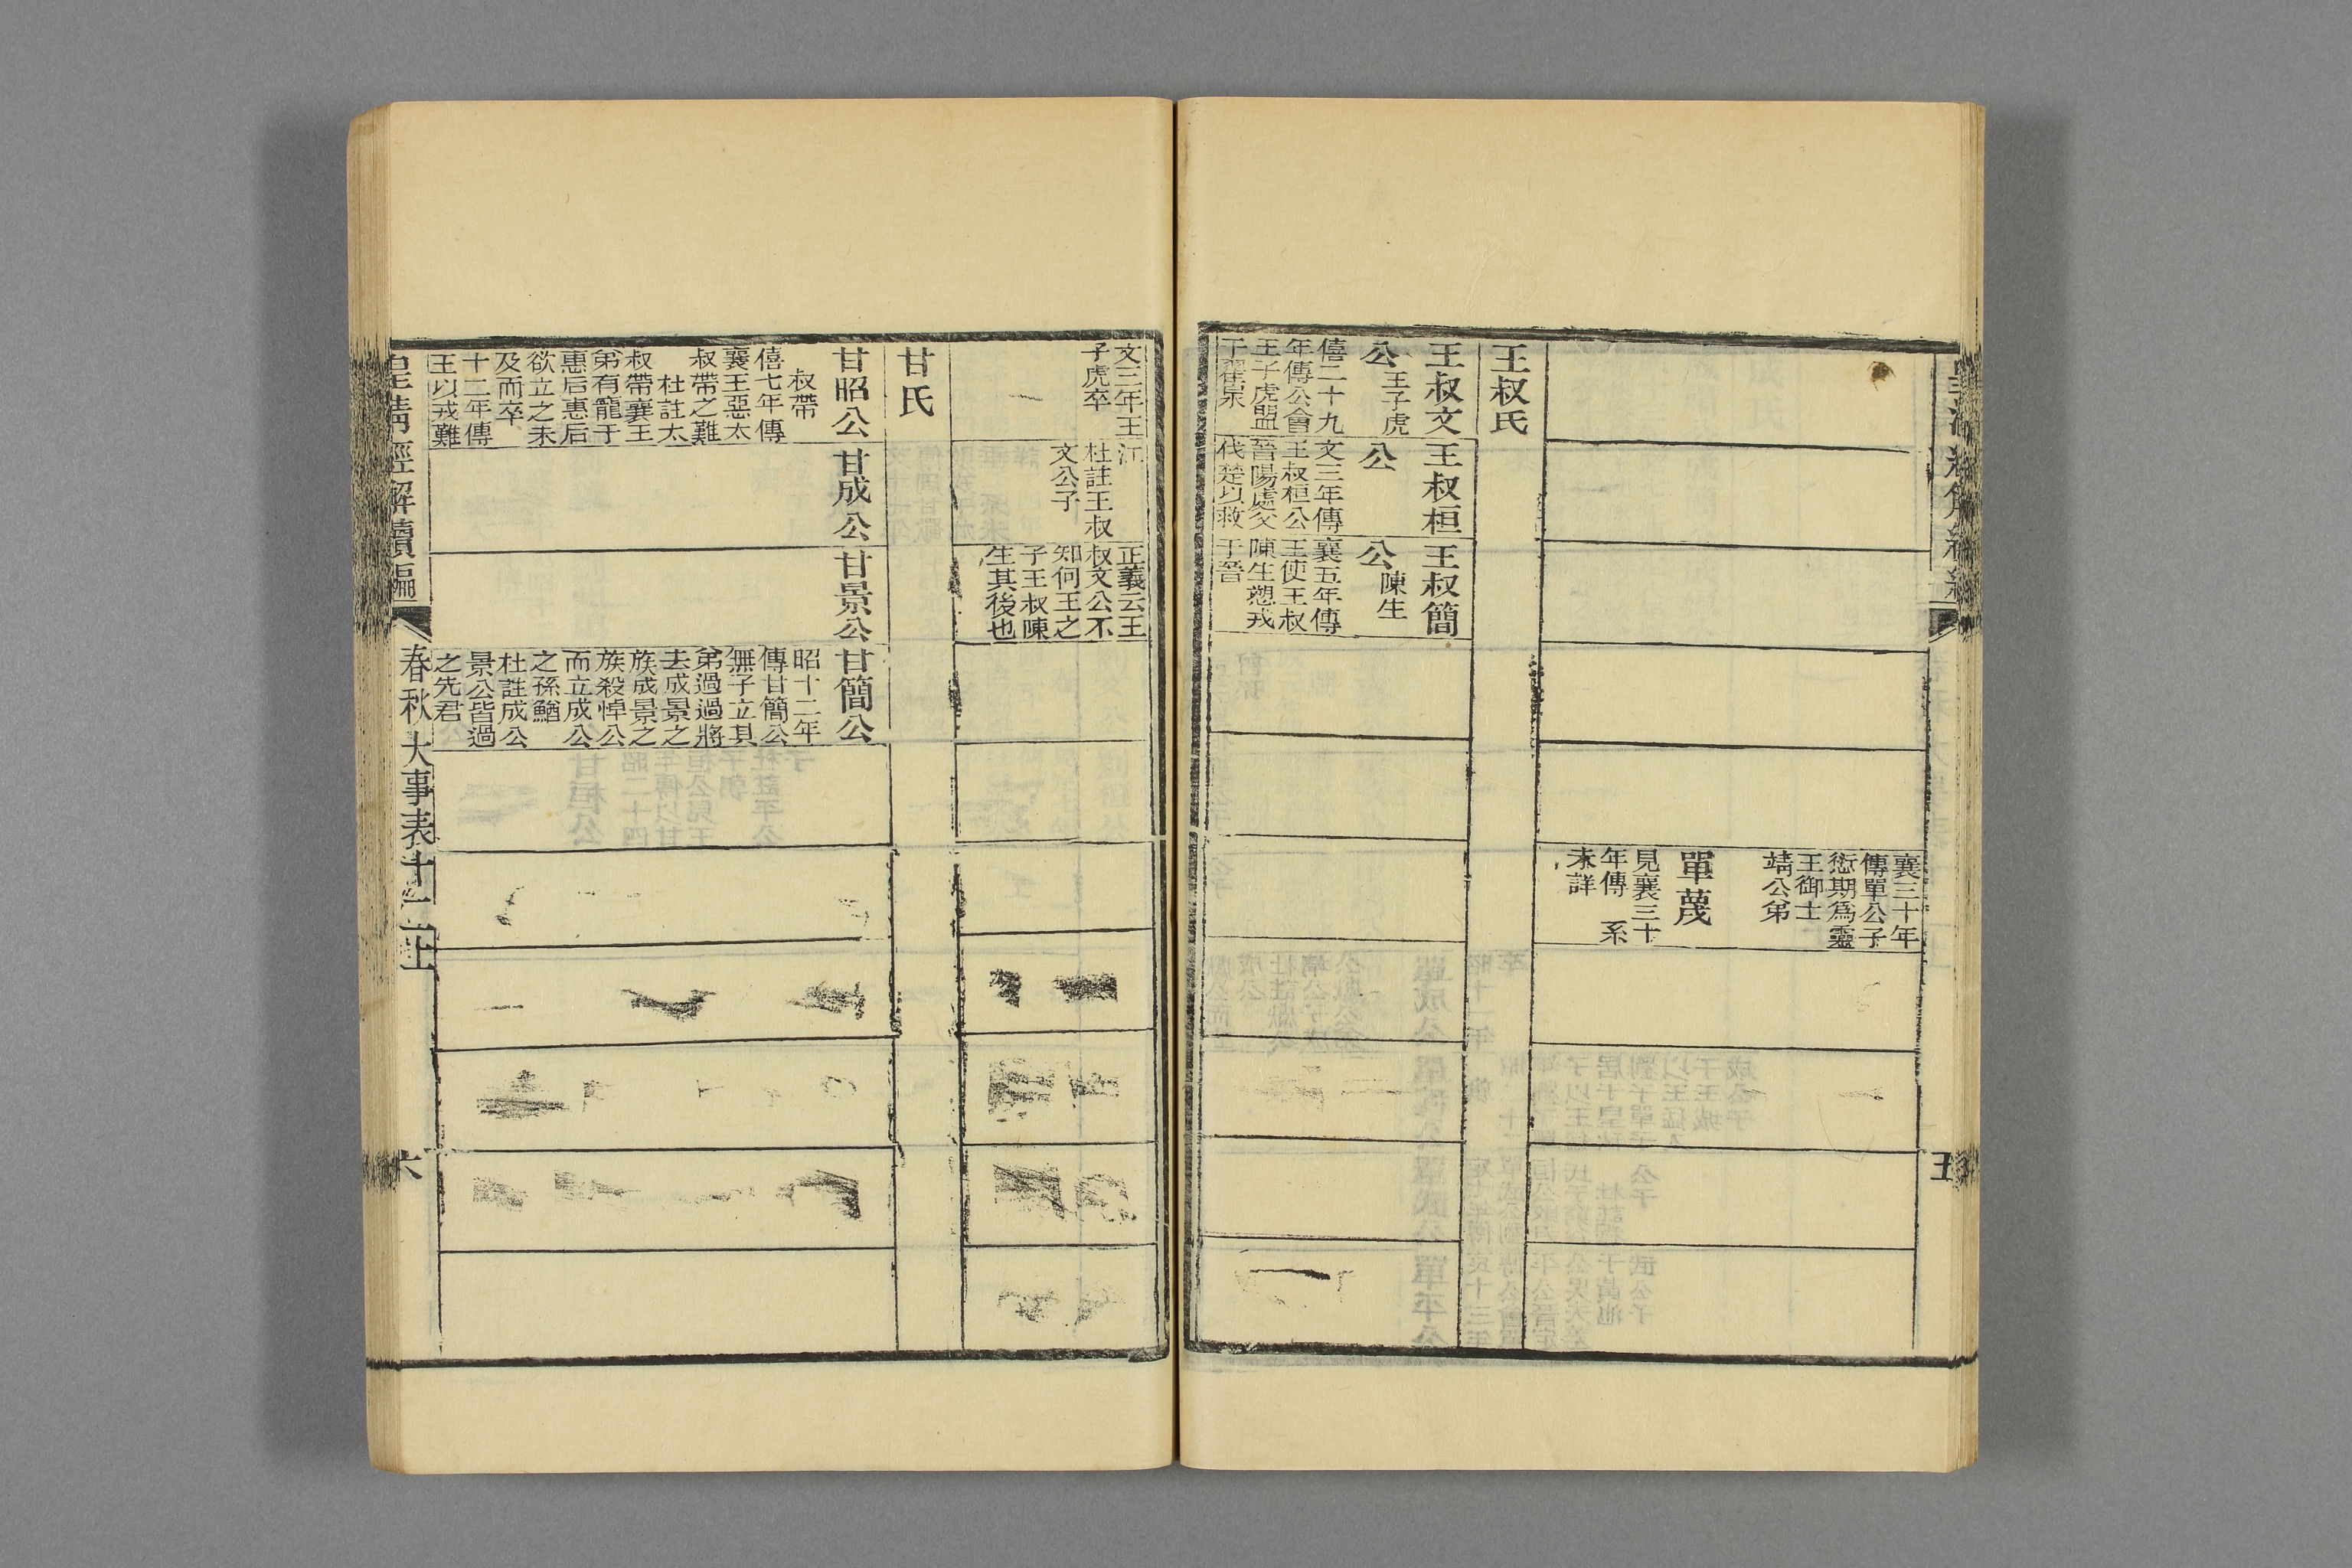 襄三十年
傳單公子
愆期爲靈
王御士
靖公弟
單蔑
見襄三十
年傳　系
未詳
王叔氏
王叔文
公　王子虎
僖二十九
年傳公會
王子虎盟
于翟泉
王叔桓
公
文三年傳
王叔桓公
晉陽處父
伐楚以救
王叔簡
公　陳生
襄五年傳
王使王叔
陳生愬戎
于晉
五
文三年王
子虎卒
江
杜註王叔
文公子
正義云王
叔文公不
知何王之
子王叔陳
生其後也
甘氏
甘昭公
叔帶
僖七年傳
襄王惡太
叔帶之難
杜註太
叔帶襄王
弟有寵于
惠后惠后
欲立之未
及而卒
十二年傳
王以戎難
甘成公
甘景公
甘簡公
昭十二年
傳甘簡公
無子立其
弟過過將
去成景之
族成景之
族殺悼公
而立成公
之孫鰌
杜註成公
景公皆過
之先君
皇清經解續編
春秋大事表十二上
六